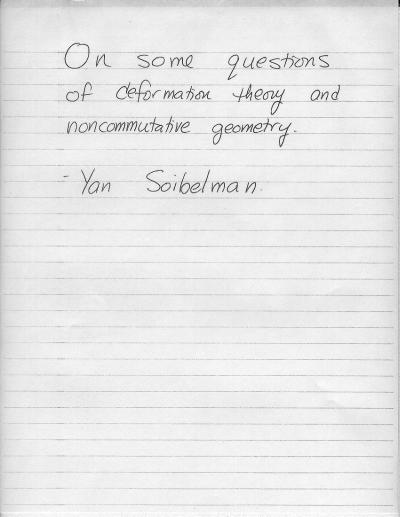 On some questions
of deformation theory and
noncommutative geometry.
- Yan Soibelman.